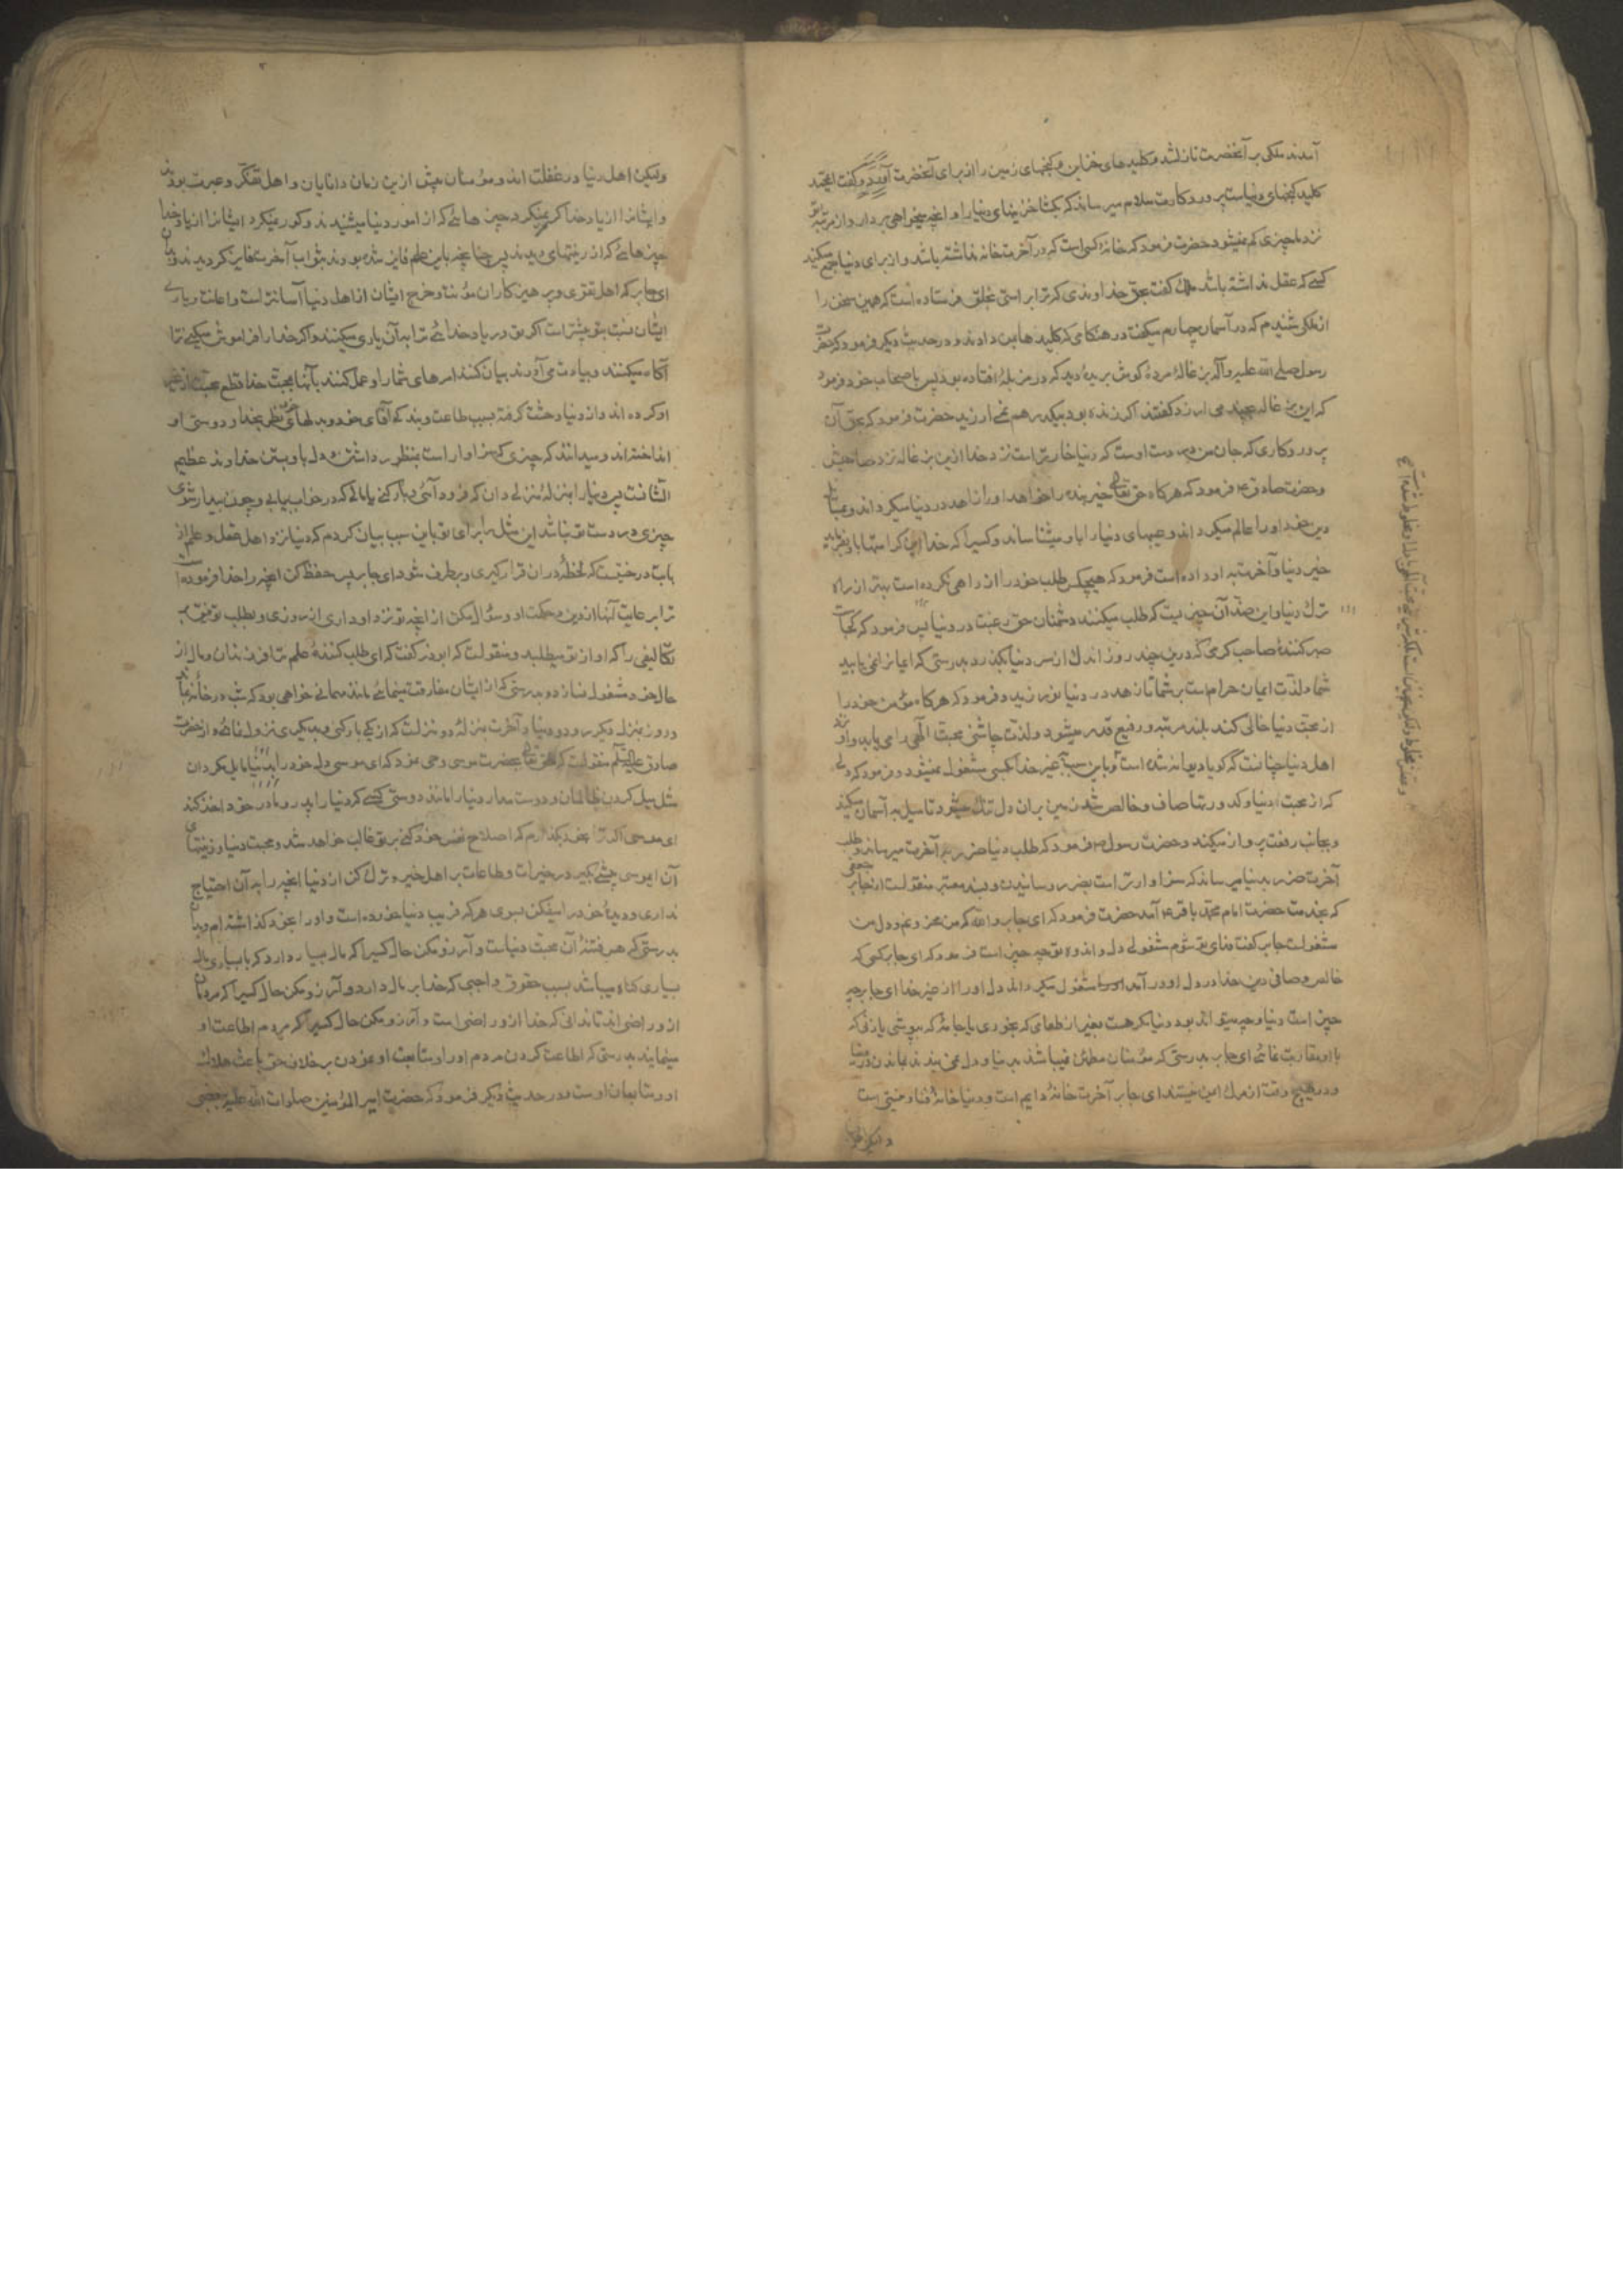 آمدند ملکی بر آنحضرت نازلشد و کلیدهای خزاین و گنجهای زمین را از برای آنحضرت آورد و گفت ایمحمد
کلید گنجهای دنیاست پروردگارت سلام میرساند که بگشا خزینهای دنیا را و آنچه میخواهی بردار و از مرتبه تو
نزد ما چیزی کم نمیشود حضرت فرمود که دنیا خانهٔ کسی است که در آخرت خانه نداشته باشد و از برای دنیا جمع میکند
کسی که عقل نداشته باشد ملک گفت بحق خداوندی که ترا براستی بخلق فرستاده است که همین سخن را
از ملکی شنیدم که در آسمان چهارم میگفت در هنگامی که کلیدها بمن دادند و در حدیث دیگر فرمود که حضرت
رسول صلی الله علیه و آله بزغاله مردهٔ گوش بریده دید که در مزبلهٔ افتاده بود پس باصحاب خود فرمود
که این بزغاله بچند می ارزد گفتند اگر زنده بود بیکدرهم نمی ارزید حضرت فرمود که بحق آن
پروردگاری که جان من در دست اوست که دنیا خوارتر است نزد خدا ازین بزغاله نزد صاحبش
و حضرت صادق ع فرمود که هرگاه حق تعالی خیر بنده را خواهد او را زاهد در دنیا میگرداند و بمسائل
دین خود او را عالم میگرداند و عیبهای دنیا را باو میشناساند و کسیرا که خدا این کرامتها باو بفرماید
خیر دنیا و آخرت به او داده است فرمود که هیچکس طلب حق را از راهی نکرده است بهتر از راه
ترک دنیا و این ضد آن چیزیست که طلب میکنند دشمنان حق رغبت در دنیا پس فرمود که کجاست
صبر کنندهٔ صاحب کرمی که درین چند روز اندک از سر دنیا بگذرد بدرستی که ایمانرا نمی یابید
شما و لذت ایمان حرام است بر شما تا زهد در دنیا نورزید و فرمود که هرگاه مؤمن خود را
از محبت دنیا خالی کند بلند مرتبه و رفیع قدر میشود و لذت چاشنی محبت الهی را می یابد و او نزد
اهل دنیا چنانست که گویا دیوانه شده است و باین سبب بغیر خدا بکسی مشغول نمیشود و فرمود که دلی
که از محبت دنیا و کدورتها صاف و خالص شد زمین بران دل تنگ میشود تا میل به آسمان میکند
و بجانب رفعت پرواز میکند و حضرت رسول ص فرمود که طلب دنیا ضرر به آخرت میرساند و طلب
آخرت ضرر بدنیا میرساند که سزاوارتر است بضرر رسانیدن و بسند معتبر منقولست از جابر جعفی
که بخدمت حضرت امام محمد باقر ع آمد حضرت فرمود که ای جابر والله که من محزونم و دل من
مشغولست جابر گفت فدای تو شوم مشغولی دل و اندوه تو چه چیز است فرمود که ای جابر کسی که
خالص و صافی دین خدا در دل او درآمد او را مشغول میگرداند دل او را از غیر خدا ای جابر چه
چیز است دنیا و چه میتواند بود دنیا مگر هست بغیر از طعامی که بخوری یا جامه که بپوشی یا زنی که
با او مقاربت نمائی ای جابر بدرستی که مؤمنان مطمئن نمیباشند بدنیا و دل نمی بندند بماندن در دنیا
و در هیچ وقت از مرک ایمن نیستند ای جابر آخرت خانهٔ دایم است و دنیا خانهٔ فنا و منتهی است
ولیکن اهل دنیا در غفلت اند و مؤمنان پیش ازین زمان دانایان و اهل تفکر و عبرت بودند
و ایشانرا از یاد خدا کر نمیکرد چیزهائی که از امور دنیا میشنیدند و کور نمیکرد ایشانرا از یاد خدا
چیزهائی که از زینتهای میدیدند پس چنانچه باین علم فایز شده بودند بثواب آخرت فایز گردیدند و بدان
ای جابر که اهل تقوی و پرهیزکاران مؤنت و خرج ایشان از اهل دنیا آسانتر است و اعانت و یاری
ایشان نسبت بتو بیشتر است اگر تو در یاد خدائی ترا بر آن یاری میکنند و اگر خدا را فراموش میکنی ترا
آگاه میکنند و بیادت می آورند بیان کنند امرهای شما را و عمل کنند بآنها بمحبت خدا قطع محبت از غیر
او کرده اند و از دنیا وحشت گرفته بسبب طاعت و بندگی آقای خود و بدلهای خود نظر بخدا و دوستی او
انداخته اند و میدانند که چیزی که سزاوار است بمنظور داشتن و دل باو بستن خداوند عظیم
الشانست پس دنیا را بمنزلهٔ منزلی دان که فرود آئی و بار کنی یا مالی که در خواب بیابی و چون بیدار شوی
چیزی در دست تو نباشد این مثل را برای تو باین سبب بیان کردم که دنیا نزد اهل عقل و علم از
بابت درختیست که لحظهٔ دران قرار گیری و برطرف شود ای جابر پس حفظ کن آنچه را خدا فرموده است
ترا برعایت آنها از دین و حکمت او و سؤال مکن از آنچه تو نزد او داری از روزی و بطلب توفیق بر
تکالیفی را که او از تو میطلبد و منقولست که ابوذر گفت که ای طلب کنندهٔ علم ترا فرزندان و مال از
حال خود مشغول نسازد و بدرستی که از ایشان مفارقت مینمائی مانند مهمانی خواهی بود که شب در خانه بماند
و روز بمنزل دیگر رود و دنیا و آخرت بمنزلهٔ دو منزلست که از یکی بار کنی و بدیگری نزول نمائی و از حضرت
صادق علیه السلم منقولست که حق تعالی بحضرت موسی وحی نمود که ای موسی دل خود را بدنیا مایل مگردان
مثل میل کردن ظالمان و دوست مدار دنیا را مانند دوستی کسی که دنیا را پدر و مادر خود اخذ کند
ای موسی اگر ترا بخود گذارم که اصلاح نفس خود کنی بر تو غالب خواهد شد محبت دنیا و زینتهای
آن ای موسی پیشی بگیر در خیرات و طاعات بر اهل خیر و ترک کن از دنیا آنچه را بدان احتیاج
نداری و دیدهٔ خود را میفکن بسوی هر که فریب دنیا خورده است و او را بخود گذاشته ام و بدان
بدرستی که هر فتنهٔ آن محبت دنیاست و آرزو مکن حال کسیرا که مال بسیار دارد که با بسیاری مال
بسیاری گناه میباشد بسبب حقوق واجبی که خدا بر مال دارد و آرزو مکن حال کسیرا که مردمان
ازو راضی اند تا ندانی که خدا ازو راضی است و آرزو مکن حال کسیرا که مردم اطاعت او
مینمایند بدرستی که اطاعت کردن مردم او را و متابعت او نمودن بر خلاف حق باعث هلاک
او و متابعان اوست و در حدیث دیگر فرمود که حضرت امیر المؤمنین صلوات الله علیه ببعضی